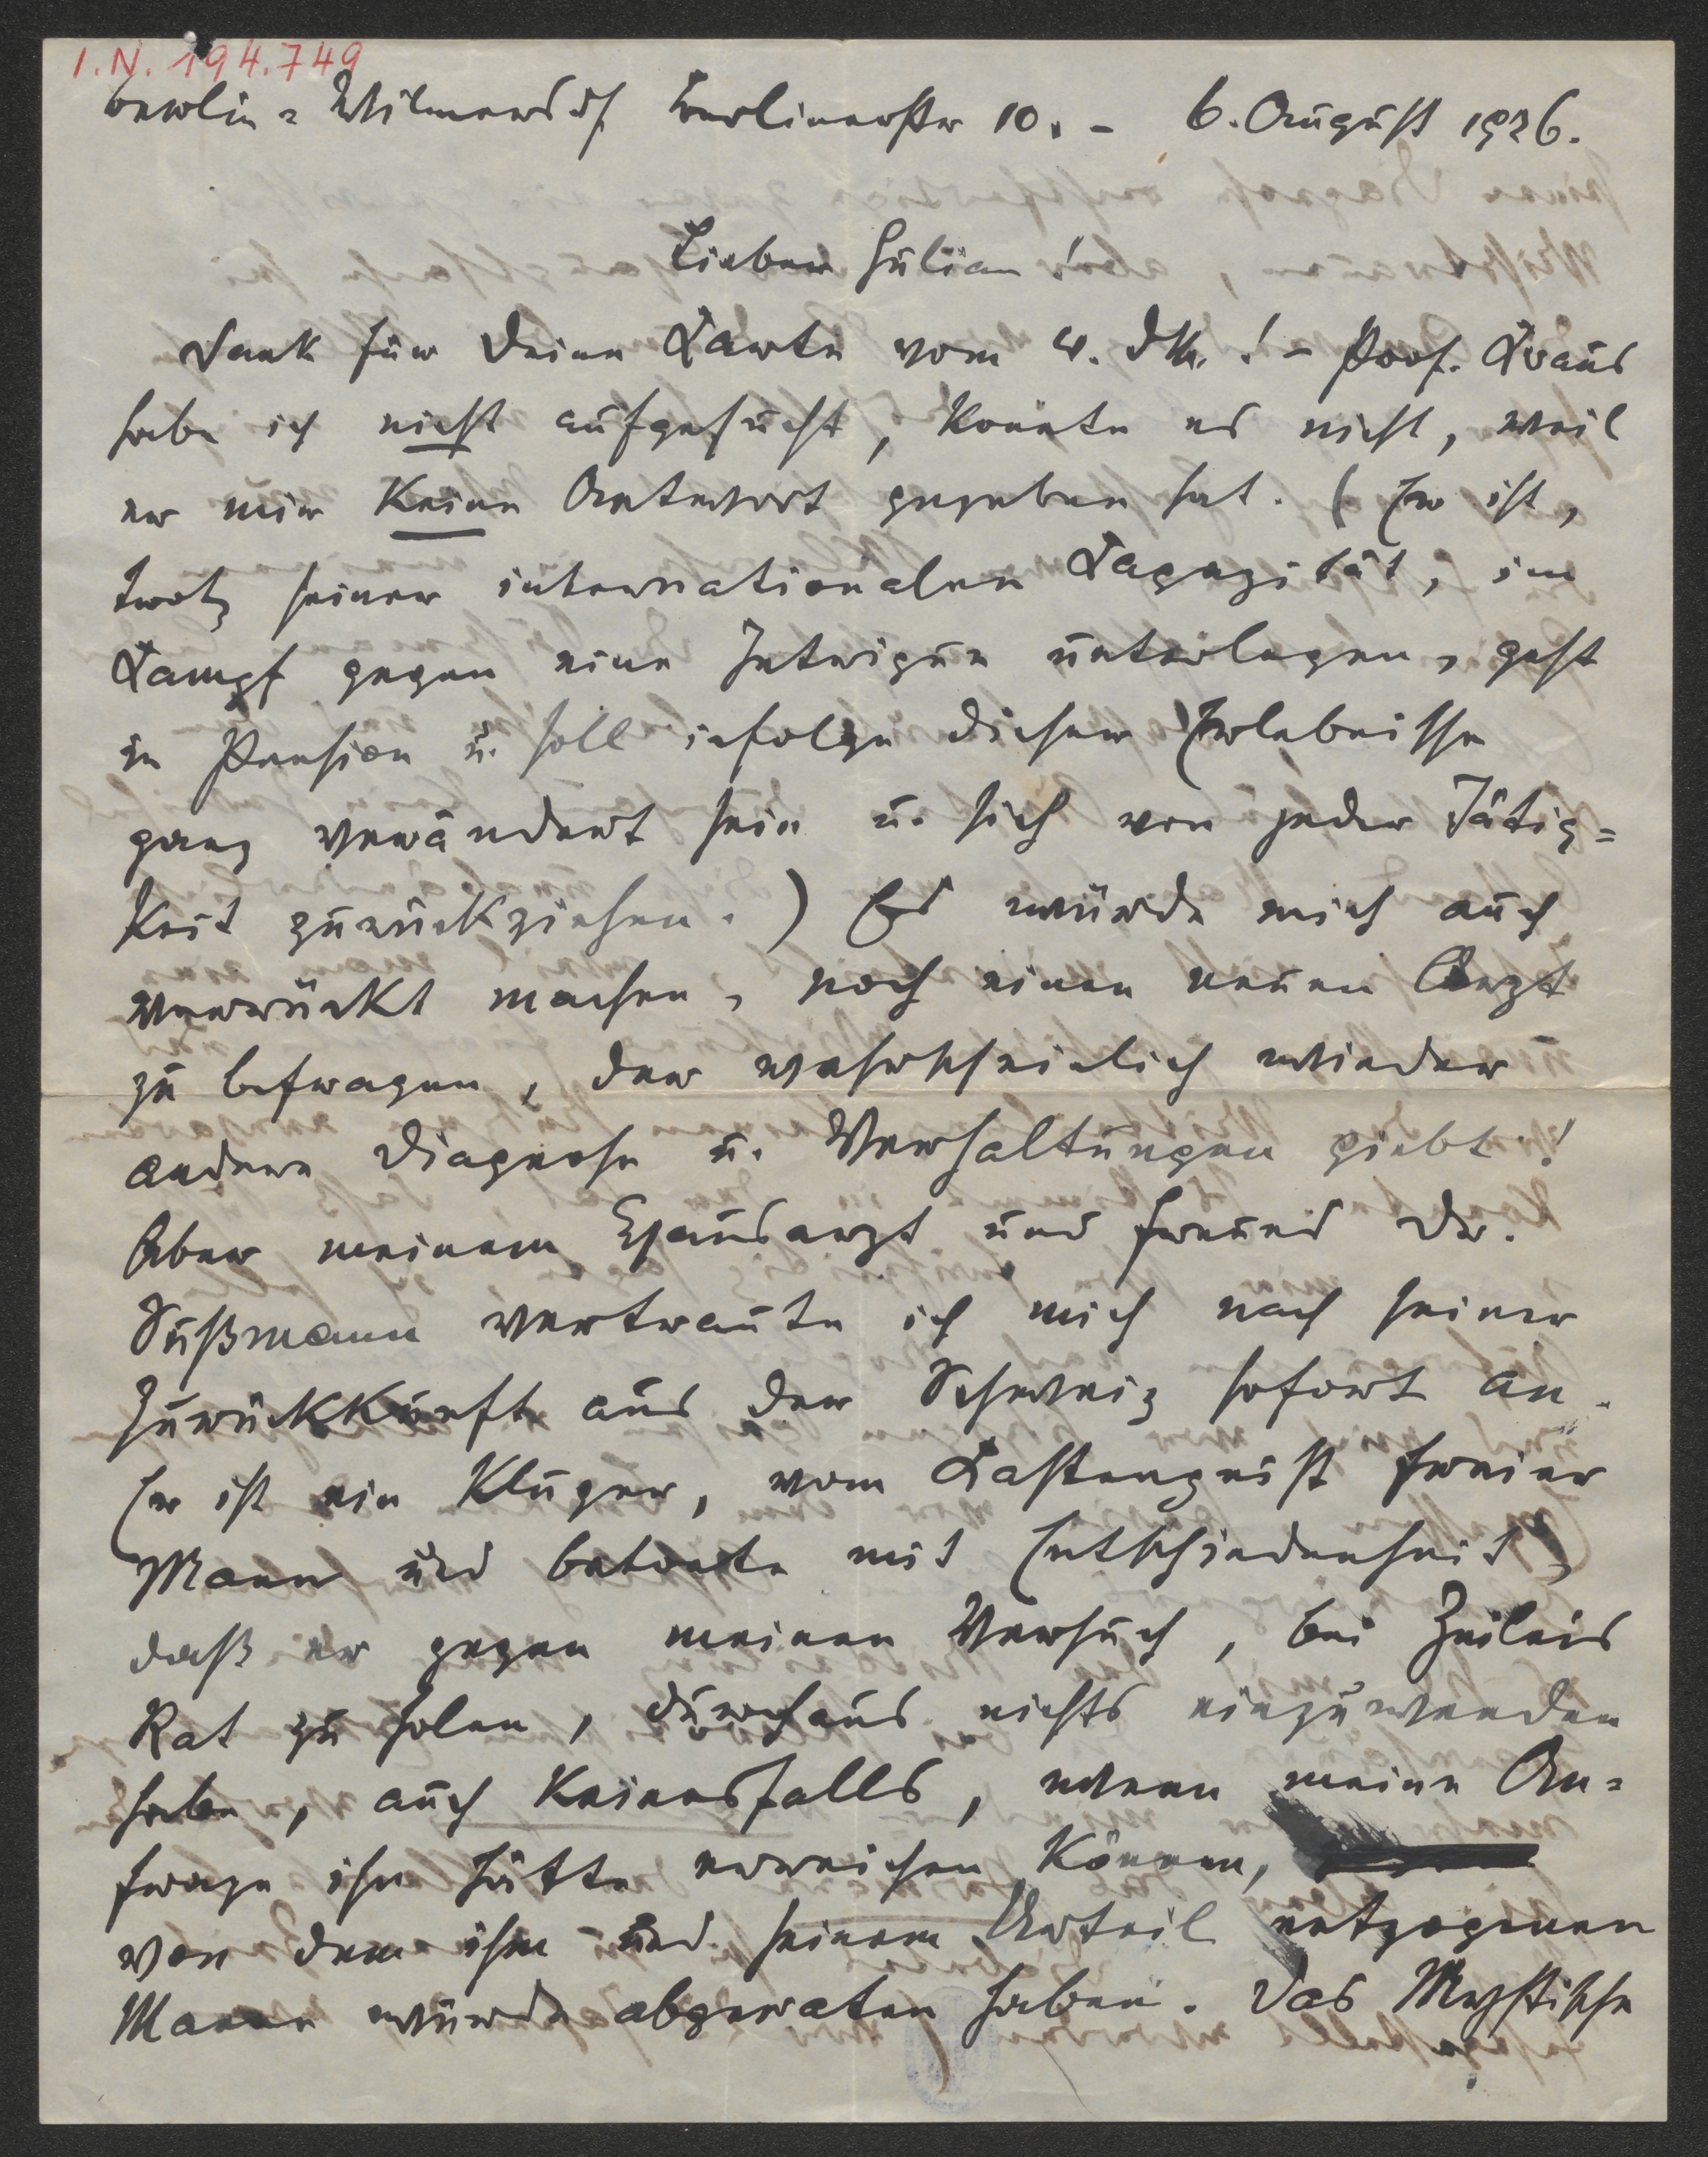 I.N. 194.749
Berlin-Wilmersdf Berlinerstr 10. – 6. August 1926.
Lieber Julian!
Dank für Deine Karte vom 4. ds. ! – Prof. Kraus
habe ich nicht aufgesucht, konnte es nicht, weil
er mir keine Antwort gegeben hat. (Er ist,
trotz seiner internationalen Kapazität, im
Kampf gegen eine Intrigue unterlegen, geht
in Pension u. soll infolge dieser Erlebnisse
ganz verändert sein u. sich von jeder Tätig=
keit zurückziehen.) Es würde mich auch
verrückt machen, noch einen neuen Arzt
zu befragen, der wahrscheinlich wieder
andere Diagnose u. Verhaltungen giebt!
Aber meinem Hausarzt und Freund Dr.
Sußmann vertraute ich mich nach seiner
Zurückkunft aus der Schweiz sofort an.
Er ist ein kluger, vom Kastengeist freier
Mann und betonte mit Entschiedenheit,
daß er gegen meinen Versuch, bei Zeileis
Rat zu holen, durchaus nichts einzuwenden
habe, auch keinesfalls, wenn meine An=
frage ihn hätte erreichen können,
von dem ihm und seinem Urteil entzogenen
Manne würde abgeraten haben. Das Mystische